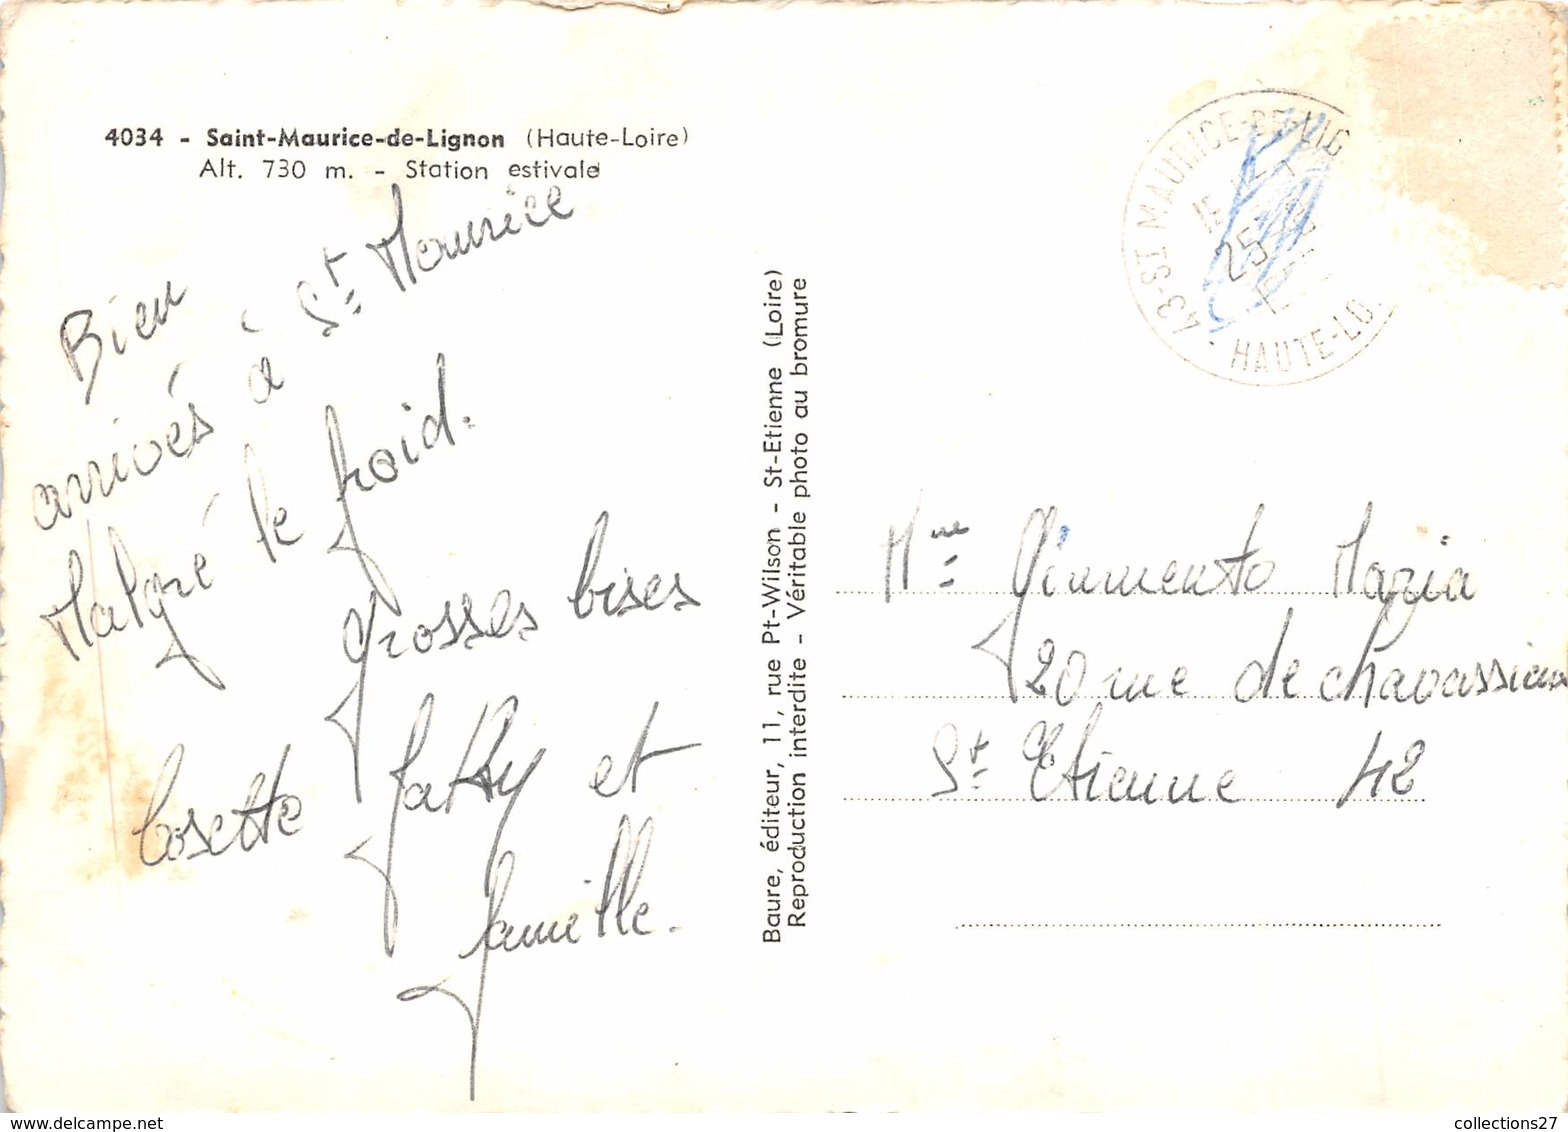 4034 - Saint-Maurice-de-Lignon (Haute-Loire)
Alt. 730 m. - Station estivale
Bien
arrivés à St Maurice
Malgré le froid.
grosses bises
Cosette Jakky et
famille.
Baure, éditeur, 11, rue Pt-Wilson - St-Etienne (Loire)
Reproduction interdite - Véritable photo au bromure
43-ST MAURICE-DE-LIG
25
HAUTE-LO
Mme Maria
20 rue de chavassieux
St Etienne 42
collections27